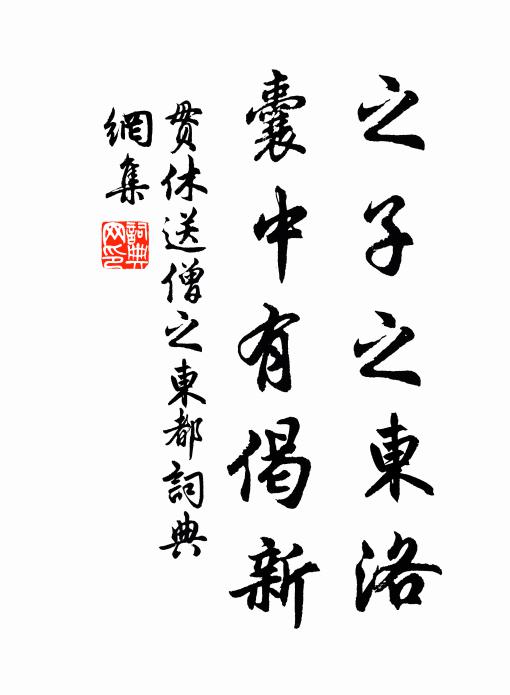 之子之東洛
囊中有偈新
贯休送僧之東都詞典
網集
詞典网印